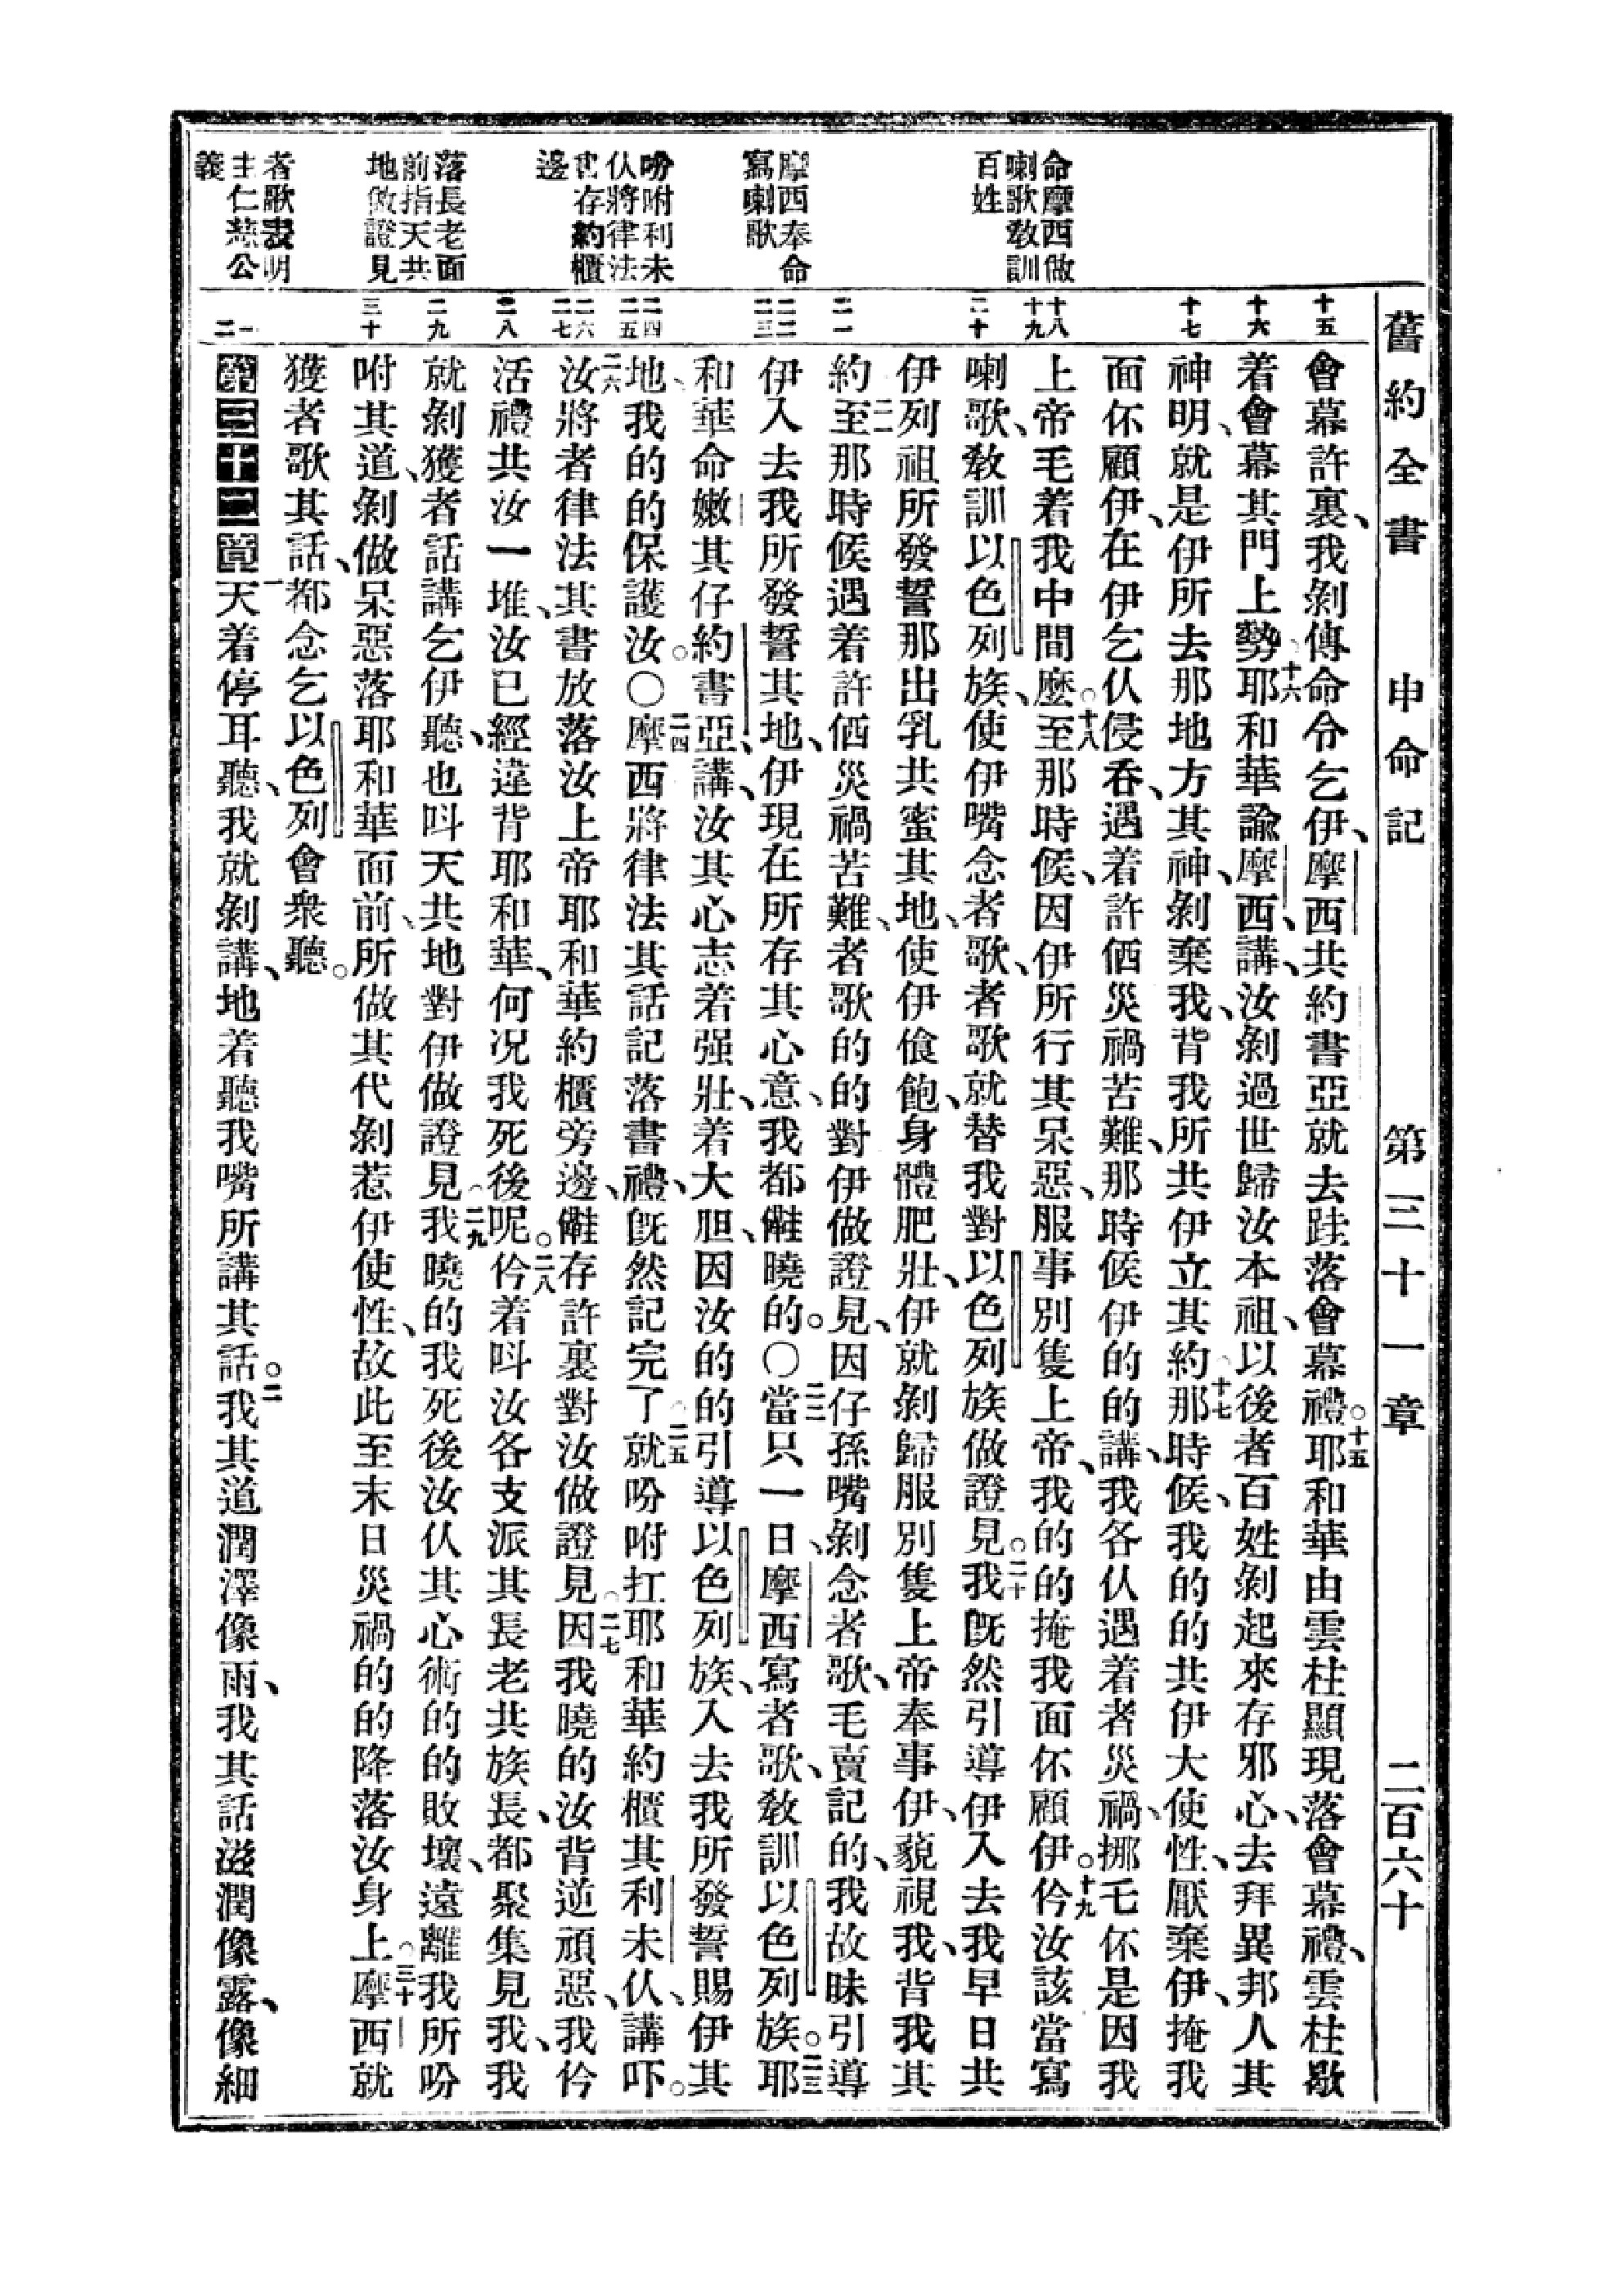 舊約全書 申命記 第三十一章 二百六十
命摩西做
喇歌教訓
百姓
摩西奉命
寫喇歌
吩咐利未
仈將律法
書存約櫃
邊
落長老面
前指天共
地做證見
者歌表明
主仁慈公
義
十五
十六
十七
十八
十九
二十
二一
二二
二三
二四
二五
二六
二七
二八
二九
三十
一
二
會幕許裏、我剝傳命令乞伊、摩西共約書亞就去跬落會幕禮。十五耶和華由雲柱顯現落會幕禮、雲柱歇
着會幕其門上勢。十六耶和華諭摩西、講、汝剝過世歸汝本祖、以後者百姓剝起來存邪心、去拜異邦人其
神明、就是伊所去那地方其神、剝棄我、背我所共伊立其約。十七那時候、我的的共伊大使性、厭棄伊、掩我
面伓顧伊、在伊乞仈侵吞、遇着許価災禍苦難、那時候伊的的講、我各仈遇着者災禍、挪乇伓是因我
上帝毛着我中間麽。十八至那時候、因伊所行其呆惡、服事別隻上帝、我的的掩我面伓顧伊。十九仱汝該當寫
喇歌、教訓以色列族、使伊嘴念者歌、者歌就替我對以色列族做證見。二十我旣然引導伊入去我早日共
伊列祖所發誓那出乳共蜜其地、使伊飡飽、身體肥壯、伊就剝歸服別隻上帝奉事伊、藐視我、背我其
約。二一至那時候遇着許価災禍苦難、者歌的的對伊做證見、因仔孫嘴剝念者歌、毛賣記的、我故昧引導
伊入去我所發誓其地、伊現在所存其心意、我都㒕曉的。〇二二當只一日、摩西寫者歌、教訓以色列族。二三耶
和華命嫩其仔約書亞、講、汝其心志着强壯、着大胆、因汝的的引導以色列族、入去我所發誓賜伊其
地、我的的保護汝。〇二四摩西將律法其話記落書禮、旣然記完了。二五就吩咐扛耶和華約櫃其利未仈、講吓。
二六汝將者律法其書放落汝上帝耶和華約櫃旁邊、㒕存許裏對汝做證見。二七因我曉的汝背逆頑惡、我仱
活禮共汝一堆、汝已經違背耶和華、何况我死後呢。二八仱着呌汝各支派其長老共族長、都聚集見我、我
就剝獲者話講乞伊聽、也呌天共地對伊做證見。二九我曉的我死後汝仈其心術的的敗壞、遠離我所吩
咐其道、剝做呆惡落耶和華面前、所做其代剝惹伊使性、故此至末日災禍的的降落汝身上。三十摩西就
獲者歌其話、都念乞以色列會衆聽。
第三十二章 一天着停耳聽、我就剝講、地着聽我嘴所講其話。二我其道潤澤像雨、我其話滋潤像露、像細